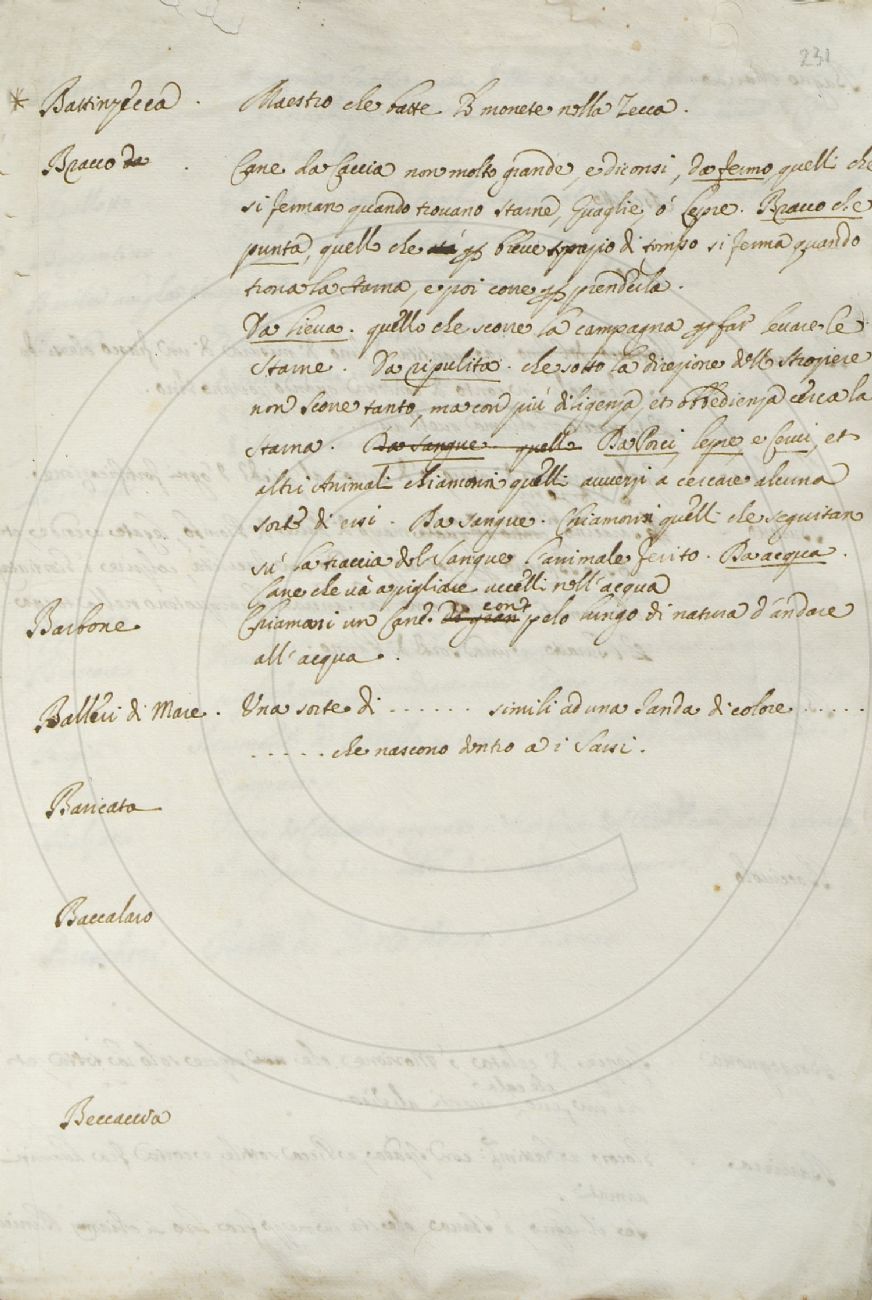 231
* Battinzecca . Maestro che batte le monete nella Zecca .
Bracco da . Cane da Caccia non molto grande, e diconsi, da fermo, quelli che
si ferman quando trovano starne, Quaglie, ó Lepre. Bracco che
punta, quello che p breve spazio di tempo si ferma quando
trova la starna, e poi corre p prenderla .
Da lieva . quello che scorre la campagna p far levare le
starne . Da ripulita . che sotto la direzione dello stroziere
non scorre tanto, ma con più diligenza, et obbedienza cerca la
starna . Da sangue quello Da Porci, lepre e Cervi, et
altri Animali chiamonsi quelli avvezzi a cercare alcuna
sorte di essi . Da sangue . Chiamonsi quelli che seguitan
sù la traccia del Sangue l'animale ferito . Da acqua .
Cane che và a pigliare uccelli nell'acqua
Barbone Chiamasi un Cane di gran con pelo lungo di natura d'andare
all'acqua .
Balleri di Mare . Una sorte di . . . . . . simili ad una Ianda di colore . . . . .
. . . . . che nascono dentro a i Sassi .
Baricata
Baccalaro
Beccaccia